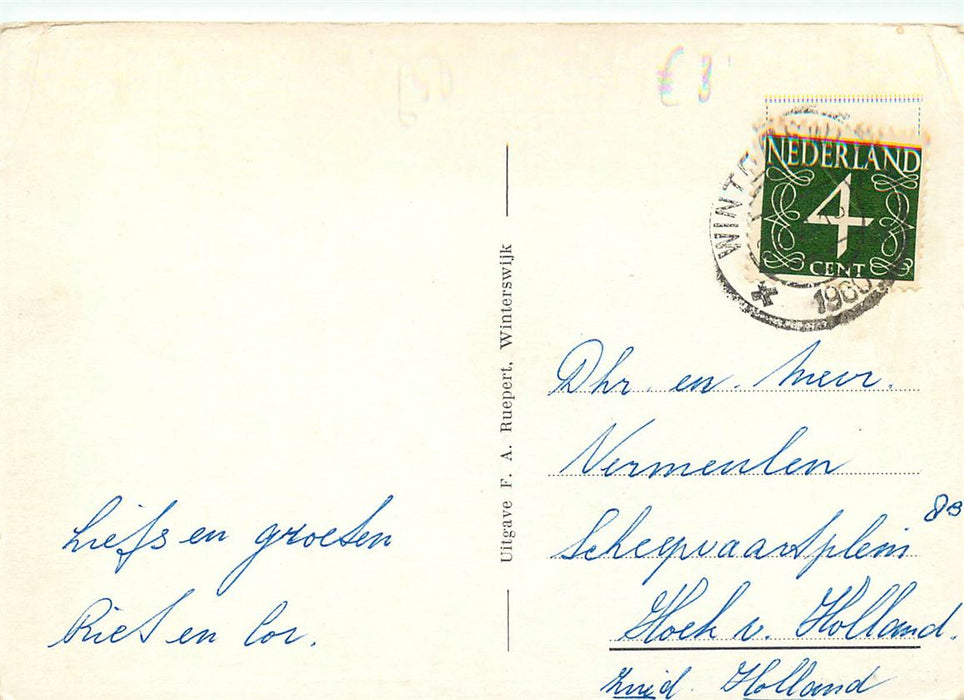 Liefs en groeten
Riet en Cor.
Uitgave F. A. Ruepert, Winterswijk
NEDERLAND
4
CENT
1960
Dhr. en. Mevr.
Vermeulen
Scheepvaartsplein 83
Hoek v. Holland.
Zuid. Holland